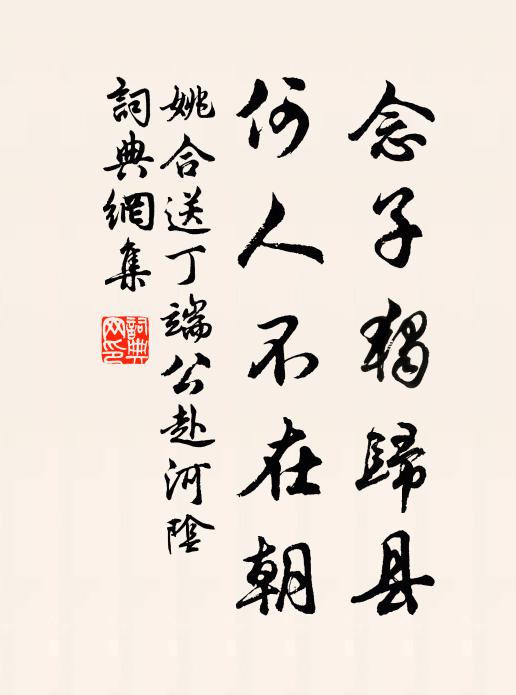 念子独歸县
何人不在朝
姚合送丁端公赴河陰
詞典網集
詞典网印